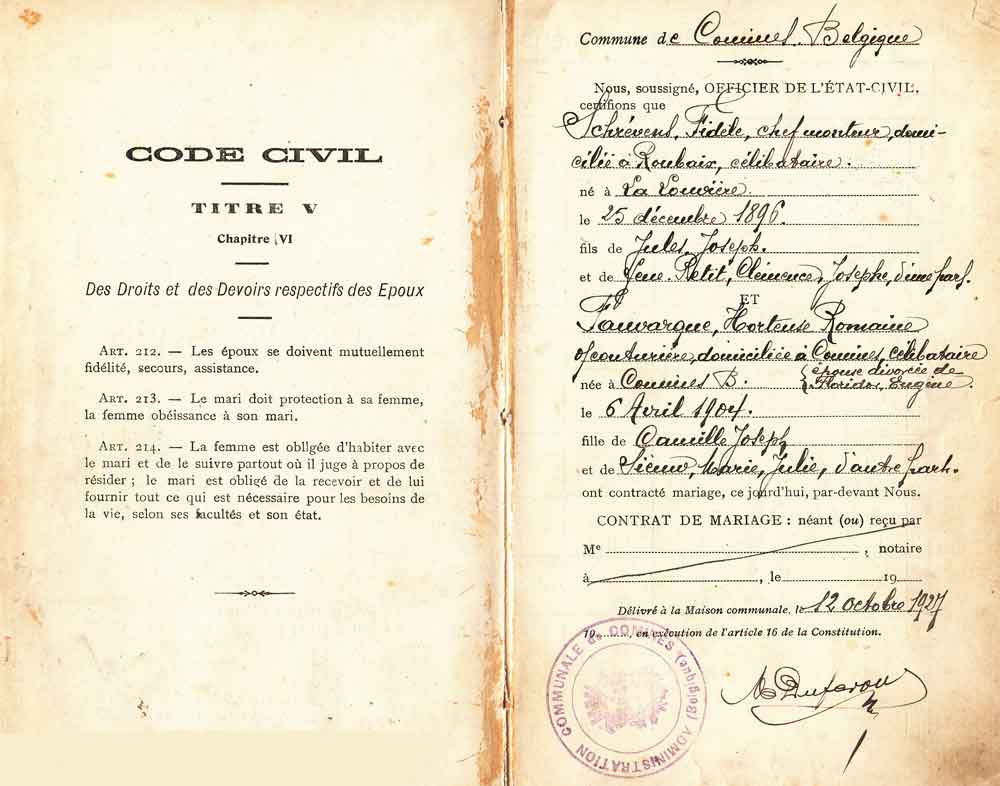 CODE CIVIL
TITRE V
Chapitre VI
Des Droits et des Devoirs respectifs des Epoux
ART. 212. — Les époux se doivent mutuellement
fidélité, secours, assistance.
ART. 213. — Le mari doit protection à sa femme,
la femme obéissance à son mari.
ART. 214. — La femme est obligée d'habiter avec
le mari et de le suivre partout où il juge à propos de
résider ; le mari est obligé de la recevoir et de lui
fournir tout ce qui est nécessaire pour les besoins de
la vie, selon ses facultés et son état.
Commune de Comines. Belgique
Nous, soussigné, OFFICIER DE L'ÉTAT-CIVIL,
certifions que
Schrévens, Fidèle, chef monteur, domi-
cilié à Roubaix, célibataire.
né à La Louvière.
le 25 décembre 1896.
fils de Jules Joseph.
et de Petit, Clémence, Josephe, d'une part.
ET
Fauvarque, Hortense Romaine
couturière, domiciliée à Comines, célibataire
née à Comines B. épouse divorcée de
Floridor, Eugène.
le 6 Avril 1904.
fille de Camille Joseph
et de Marie, Julie, d'autre part.
ont contracté mariage, ce jourd'hui, par-devant Nous.
CONTRAT DE MARIAGE : néant (ou) reçu par
Me , notaire
à , le 19
Délivré à la Maison communale, le 12 octobre 1927
19 , en exécution de l'article 16 de la Constitution.
ADMINISTRATION COMMUNALE de COMINES (Belgique)